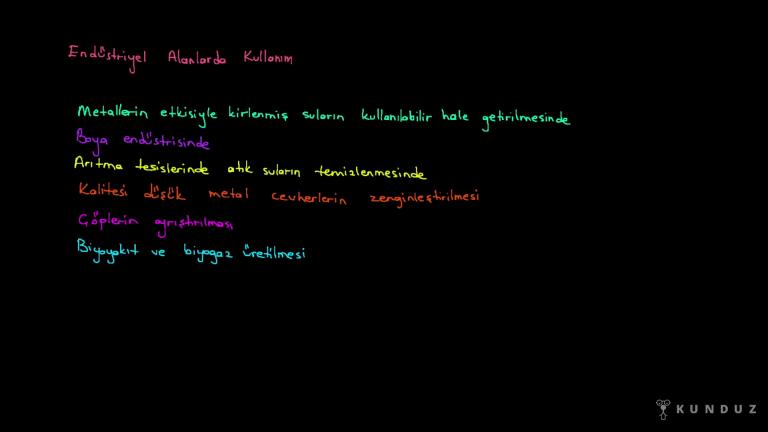 Endüstriyel Alanlarda Kullanım
Metallerin etkisiyle kirlenmiş suların kullanılabilir hale getirilmesinde
Boya endüstrisinde
Arıtma tesislerinde atık suların temizlenmesinde
Kalitesi düşük metal cevherlerin zenginleştirilmesi
Çöplerin ayrıştırılması
Biyoyakıt ve biyogaz üretilmesi
KUNDUZ